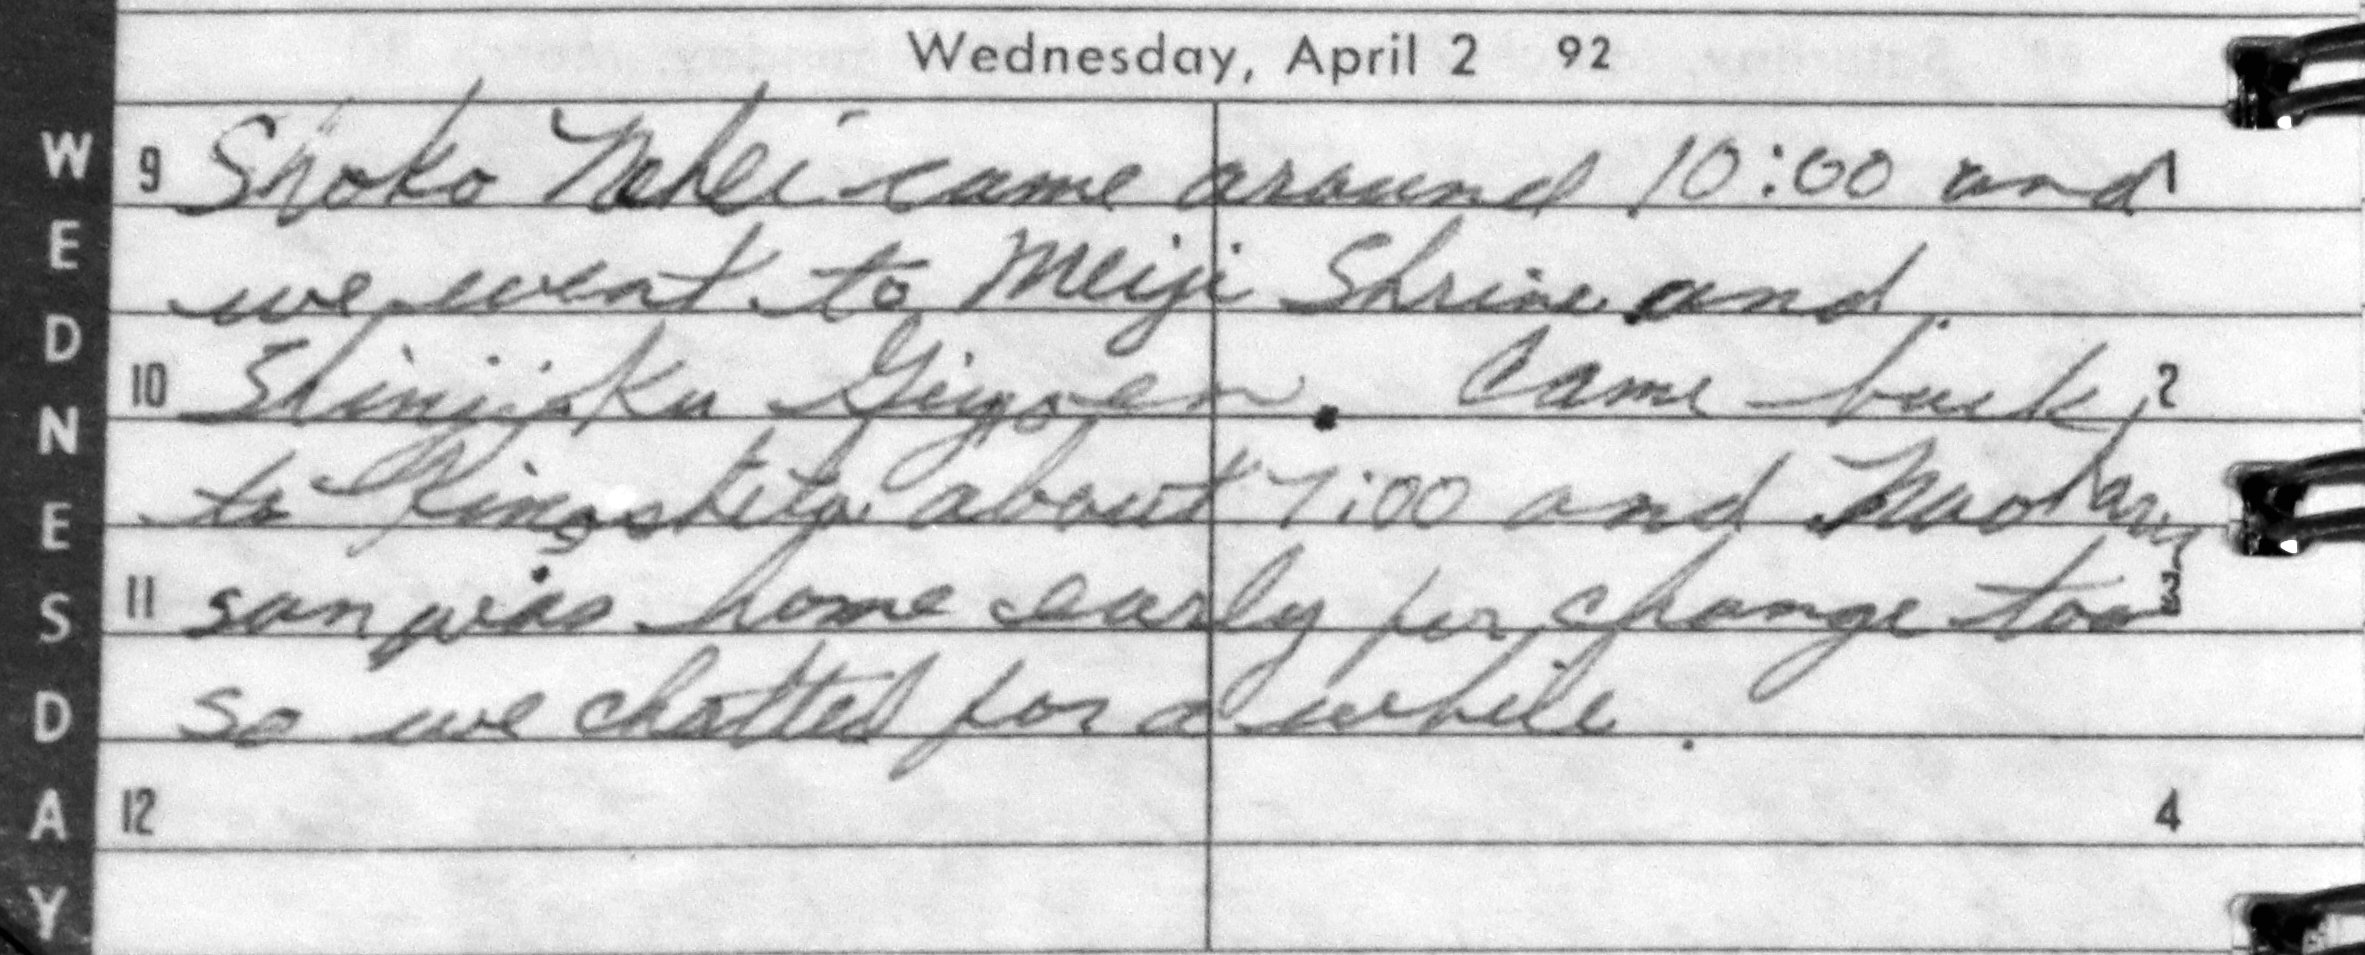 Wednesday, April 2 92
WEDNESDAY
9 Shoko Nehei came around 10:00 and 1
we went to Meiji Shrine and
10 Shinjuku Gigoen. Came back 2
to Kinoshita about 7:00 and Naoharu
11 san was home early for change too 3
so we chatted for a while.
12 4